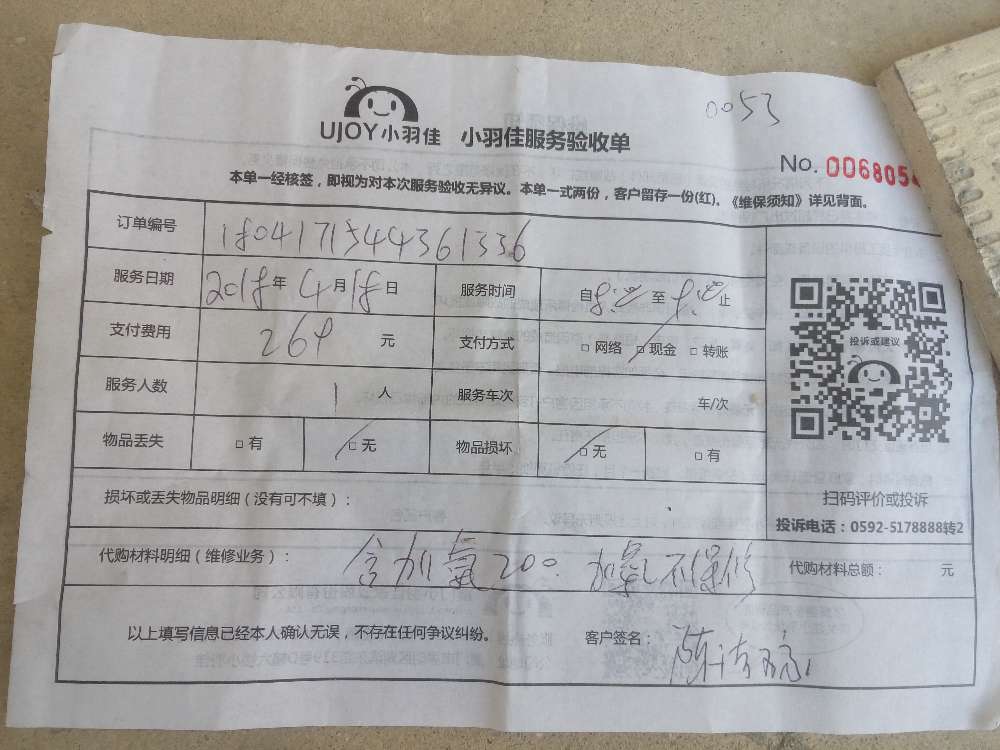 0053
UJOY小羽佳 小羽佳服务验收单
No. 0068054
本单一经核签，即视为对本次服务验收无异议。本单一式两份，客户留存一份(红)。《维保须知》详见背面。
订单编号 18041715444361336
服务日期 2018年4月18日 服务时间 自8: 至 止
支付费用 264 元 支付方式 □网络 □现金 □转账
服务人数 1人 服务车次 车/次
物品丢失 □有 □无 物品损坏 □无 □有
投诉或建议
扫码评价或投诉
投诉电话：0592-5178888转2
损坏或丢失物品明细（没有可不填）：
代购材料明细（维修业务）： 含加氟200 加氟不保修 代购材料总额： 元
以上填写信息已经本人确认无误，不存在任何争议纠纷。 客户签名： 陈